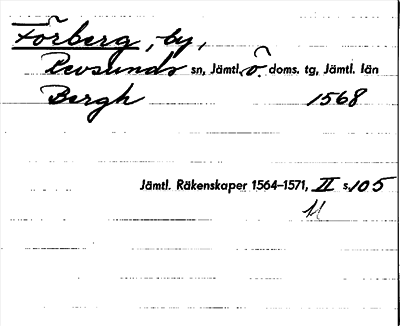 Förberg, by,
Revsunds sn, Jämtl. ö. doms. tg, Jämtl. län
Bergh 1568
Jämtl. Räkenskaper 1564–1571, II s. 105